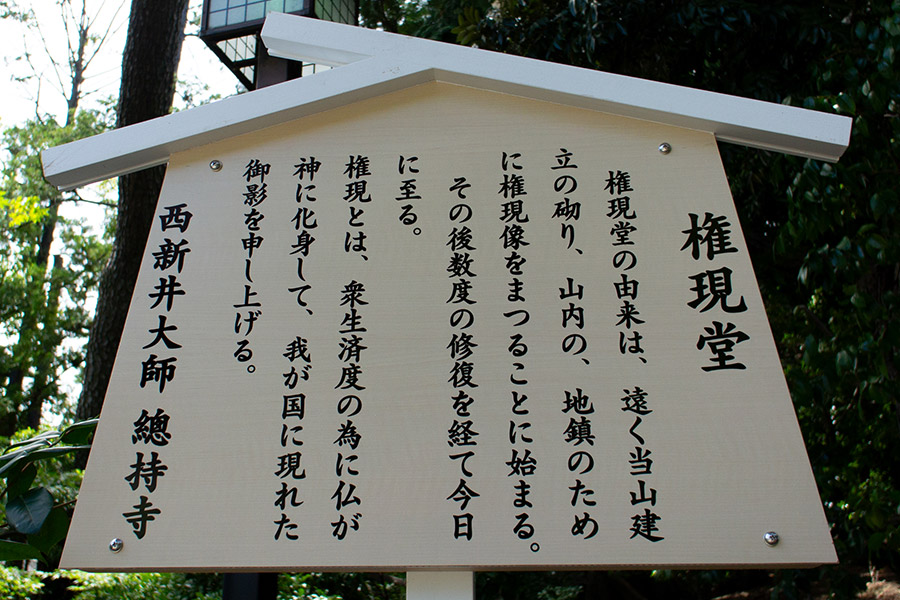 権現堂
権現堂の由来は、遠く当山建
立の砌り、山内の、地鎮のため
に権現像をまつることに始まる。
その後数度の修復を経て今日
に至る。
権現とは、衆生済度の為に仏が
神に化身して、我が国に現れた
御影を申し上げる。
西新井大師 總持寺